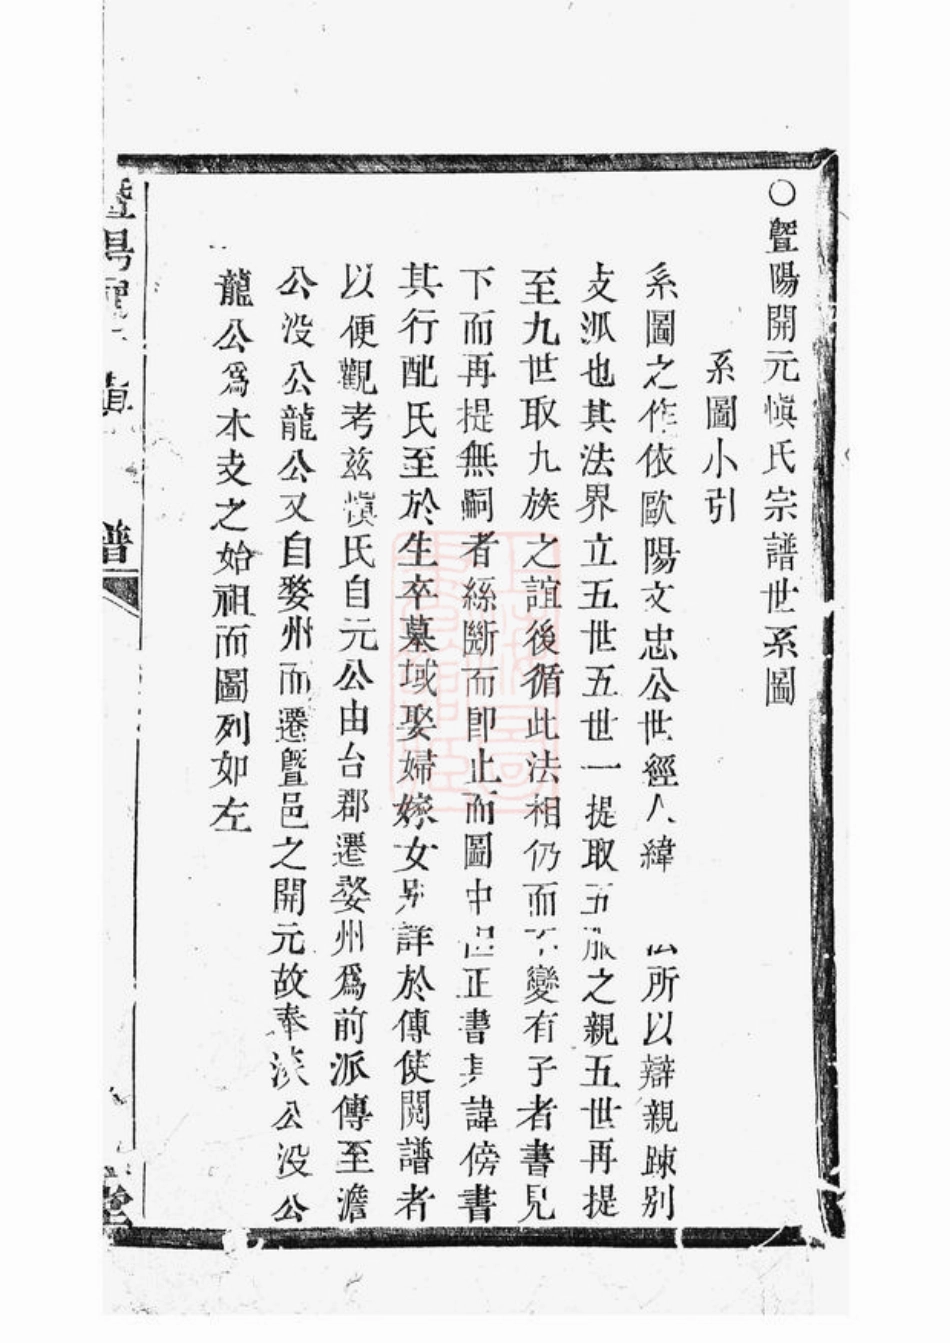 ○暨陽開元愼氏宗譜世系圖
系圖小引
系圖之作依歐陽文忠公世經人緯 法所以辯親踈别
攴派也其法界立五世五世一提取五服之親五世再提
至九世取九族之誼後循此法相仍而不變有子者書見
下而再提無嗣者絲斷而卽止而圖中 正書其諱傍書
其行配氏至於生卒墓域娶婦嫁女另詳於傳使閱譜者
以便觀考兹愼氏自元公由台郡遷婺州爲前派傳至澹
公没公龍公又自婺州而遷暨邑之開元故奉淡公没公
龍公爲木攴之始祖而圖列如左
譜
堂